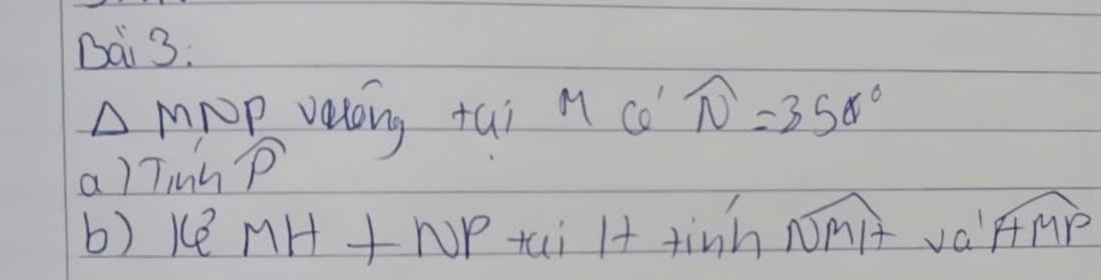 Bài 3:
Δ MNP vuông tại M có N̂ = 35°
a) Tính P̂
b) Kẻ MH ⊥ NP tại H tính NMH và HMP